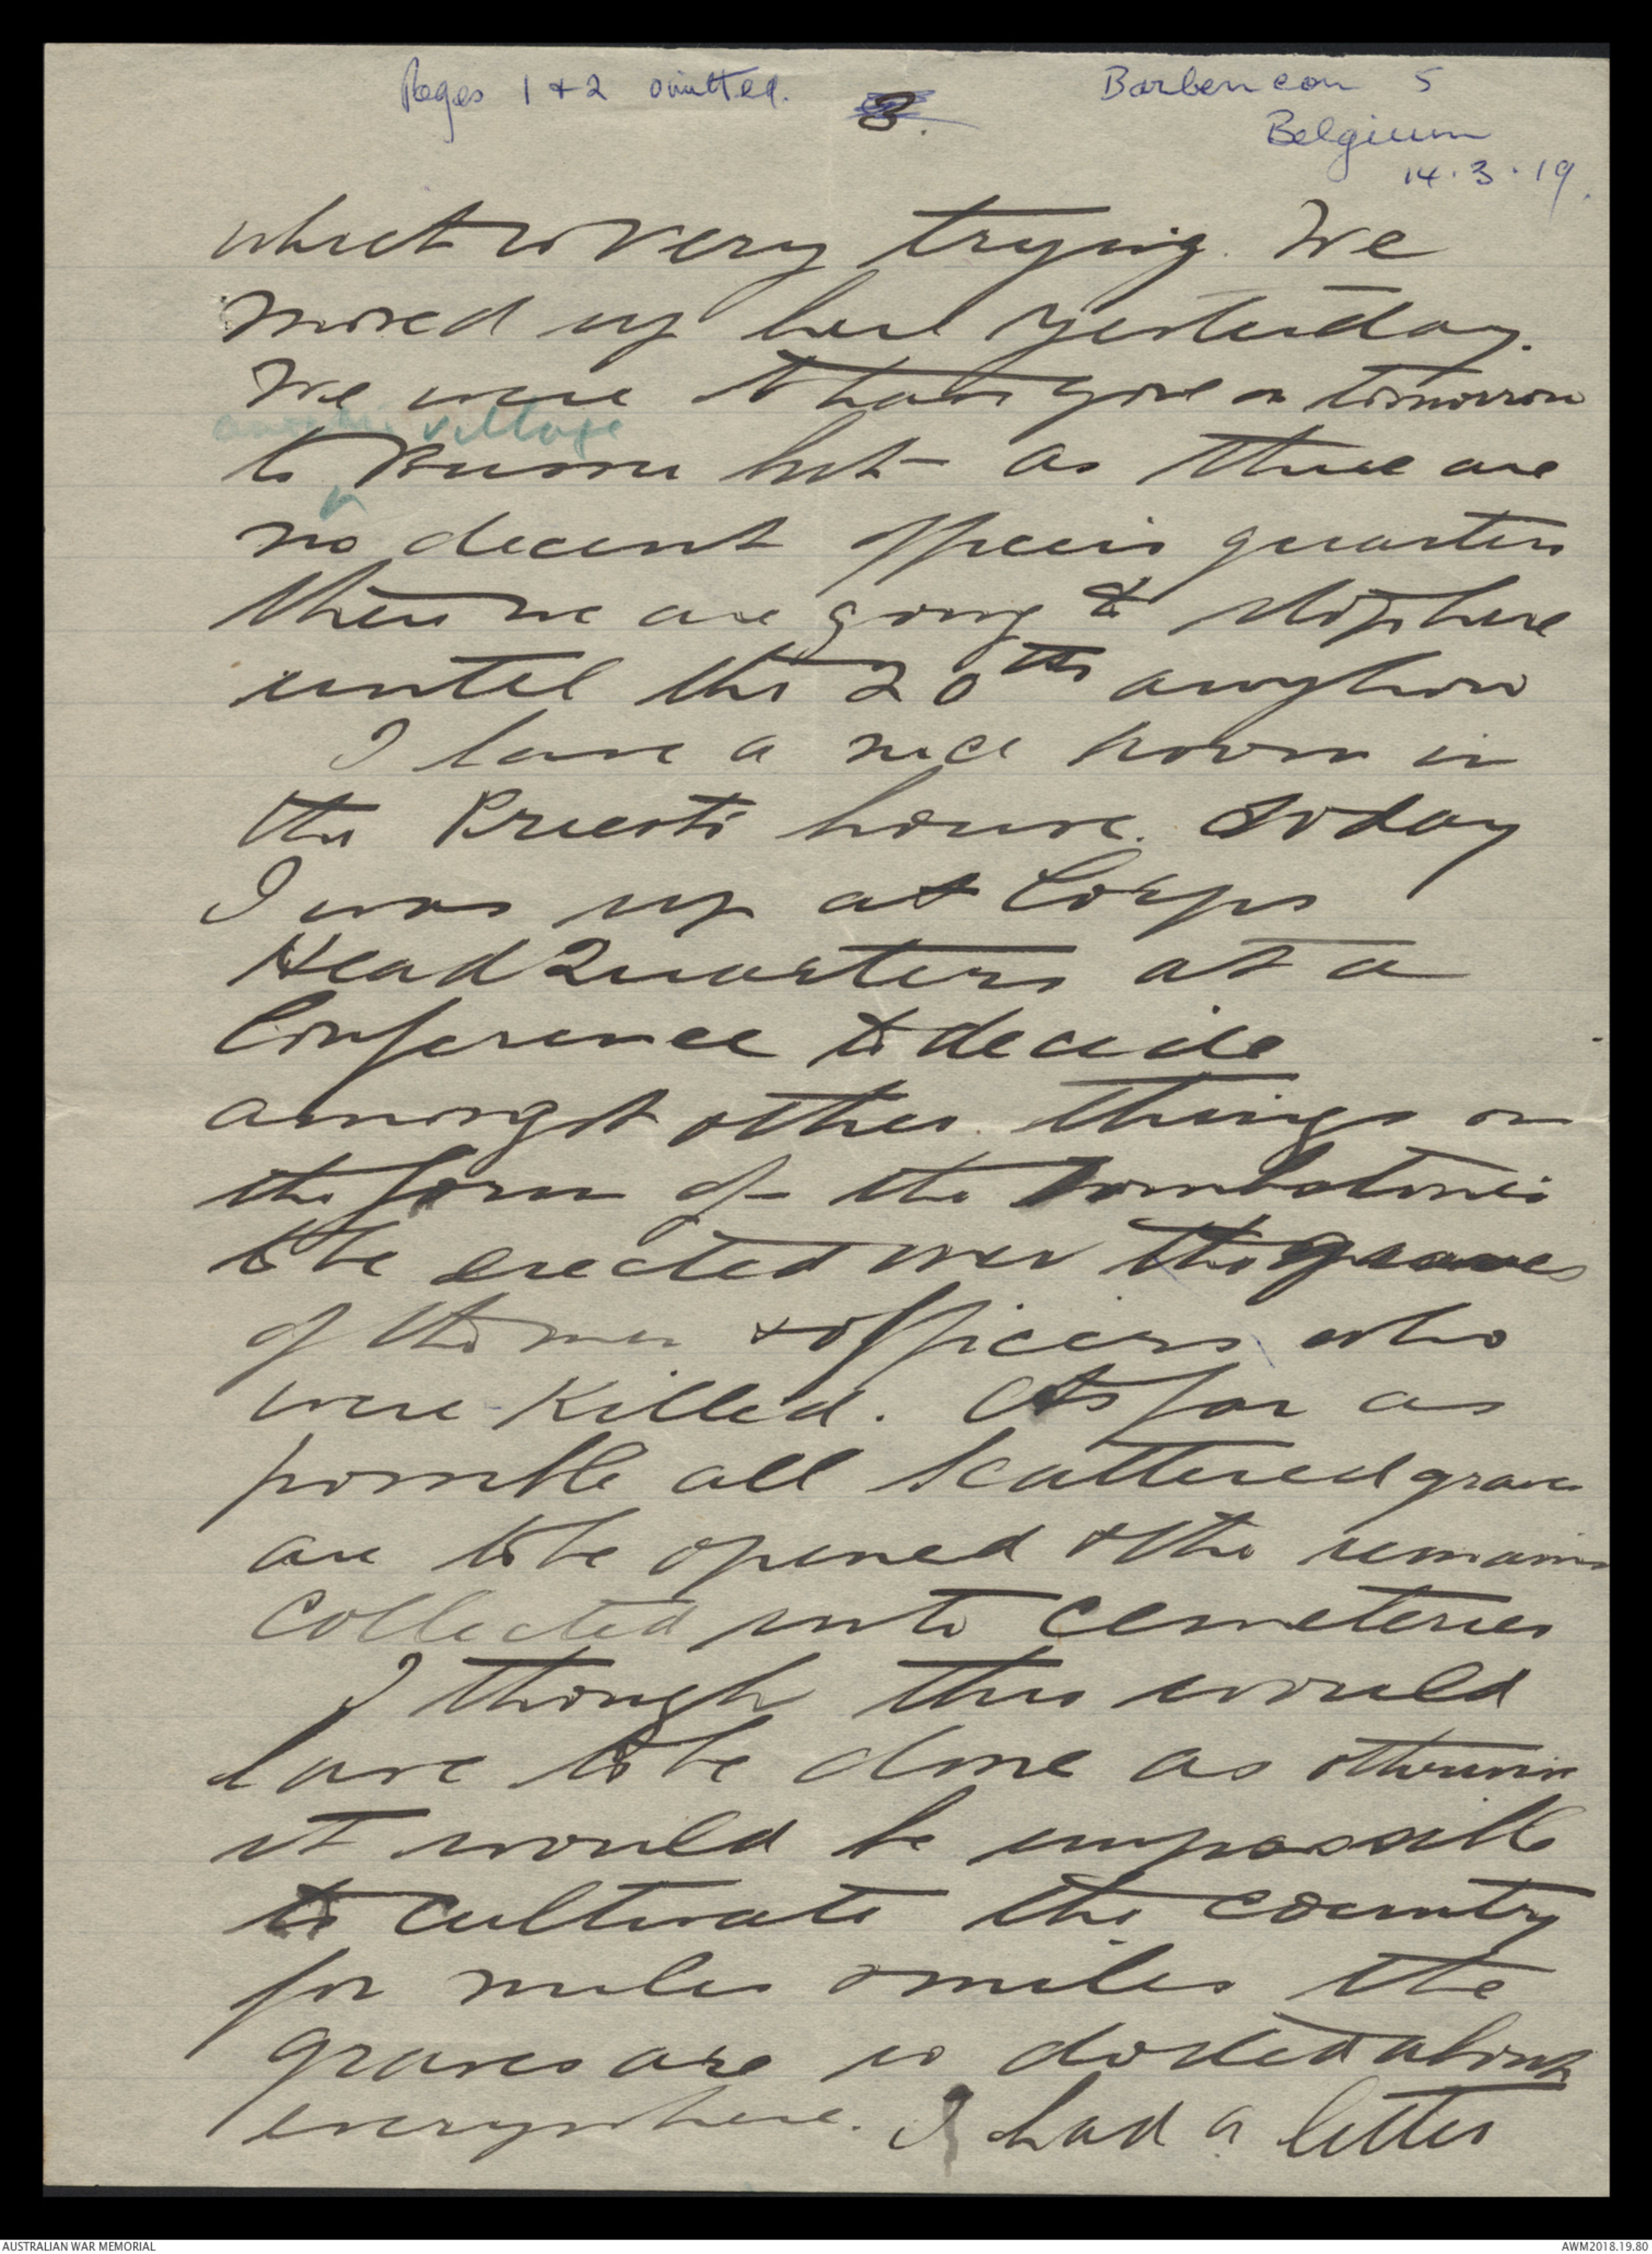 Pages 1 + 2 omitted.
3.
Barbencon 5
Belgium
14.3.19.
which is very trying. We
moved up here yesterday.
We were to have gone on tomorrow
another village
to but as there are
no decent officers quarters
there we are going to stop here
until the 20th anyhow
I have a nice room in
the Priests house. Today
I was up at Corps
Head Quarters at a
Conference to decide
amongst other things on
the form of the tombstones
to be erected over the graves
of the men & officers who
were killed. As far as
possible all scattered graves
are to be opened & the remains
collected into cemeteries
I though this would
have to be done as otherwise
it would be impossible
to cultivate the country
for miles & miles the
graves are so dotted about
everywhere. I had a letter
AUSTRALIAN WAR MEMORIAL
AWM2018.19.80